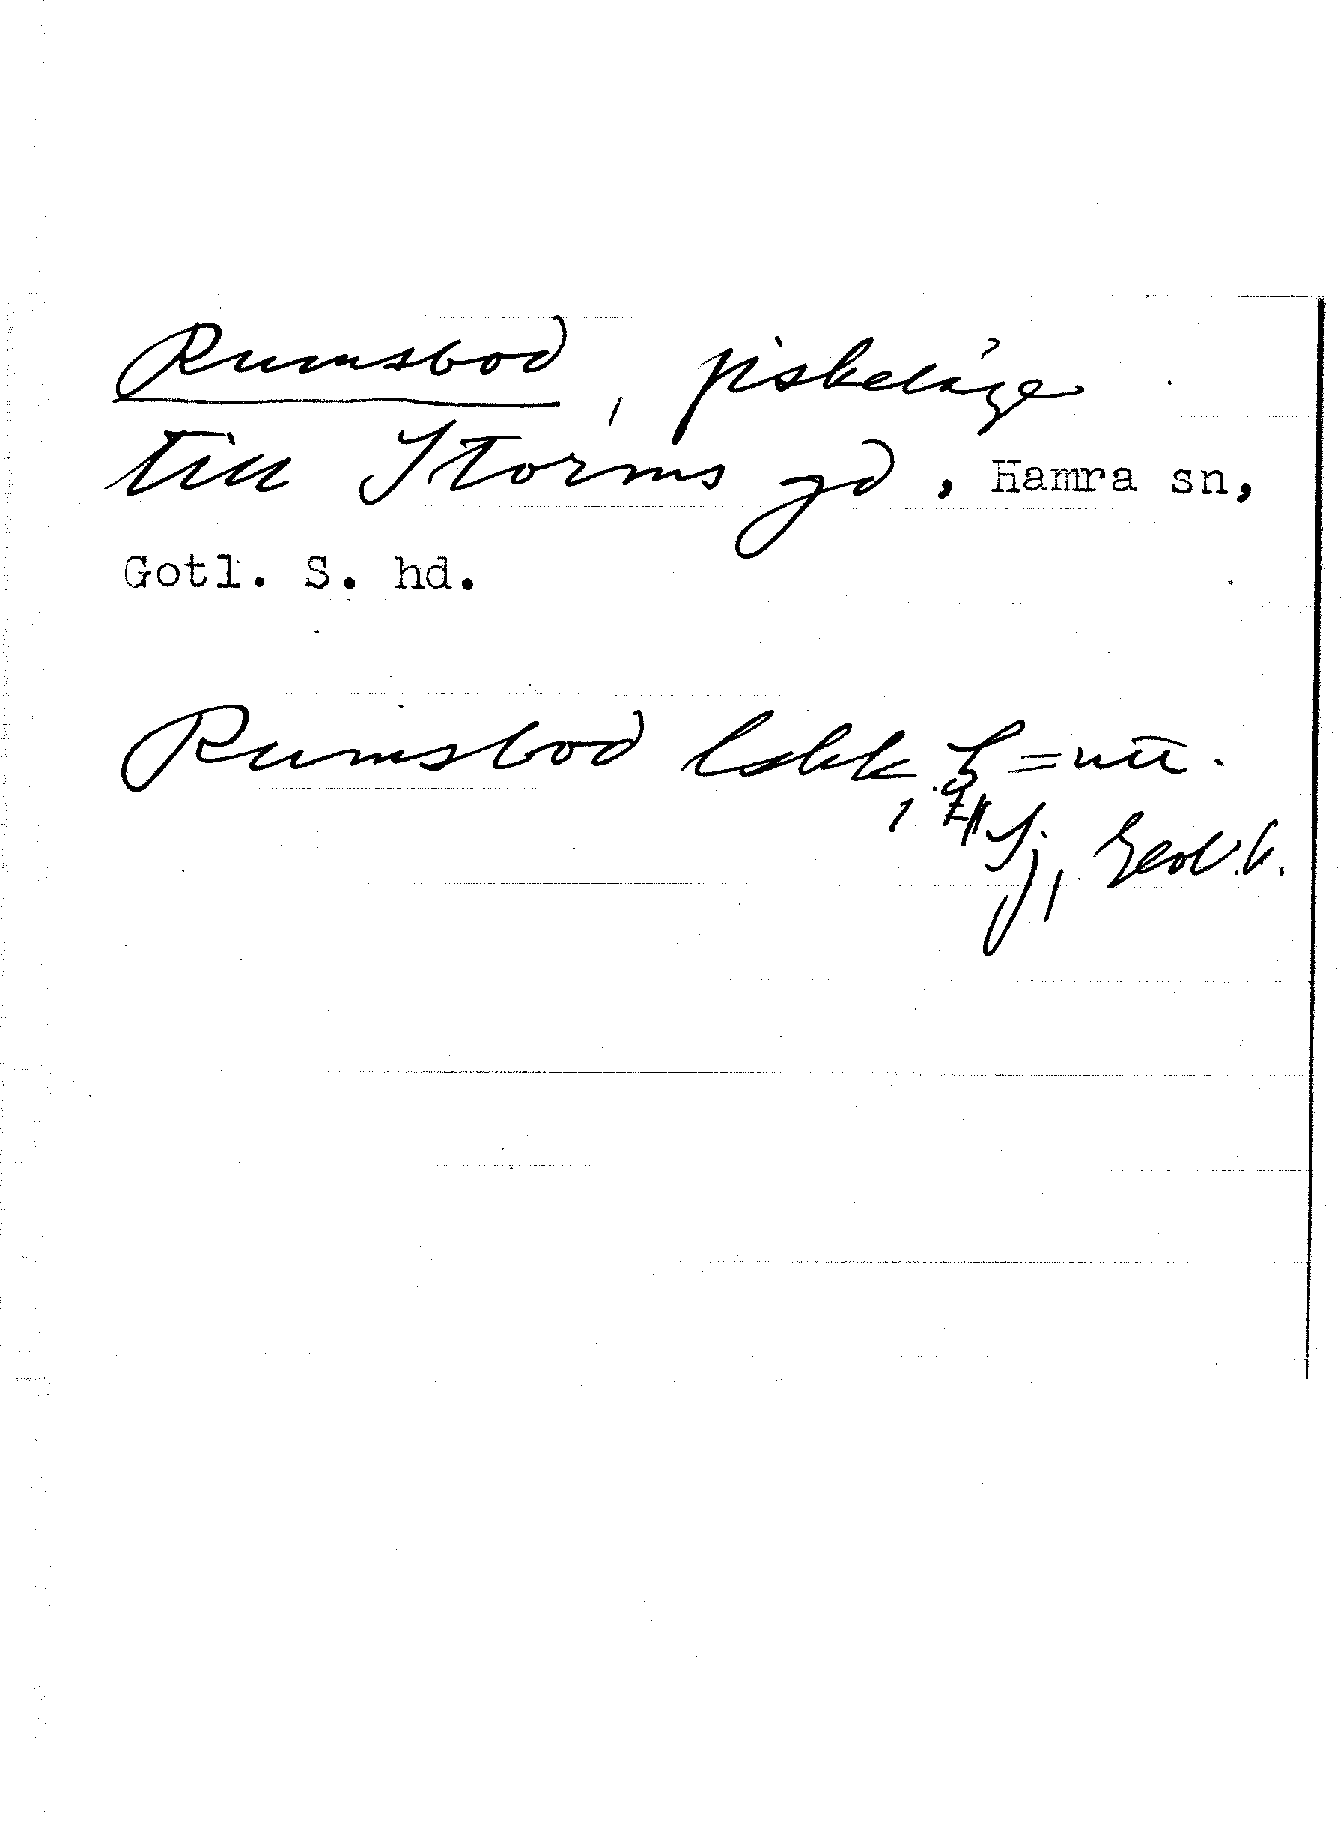 Rumsbod, fiskeläge
till Storms gd, Hamra sn,
Gotl. S. hd.
Rumsbod
Sj, Geol. b.